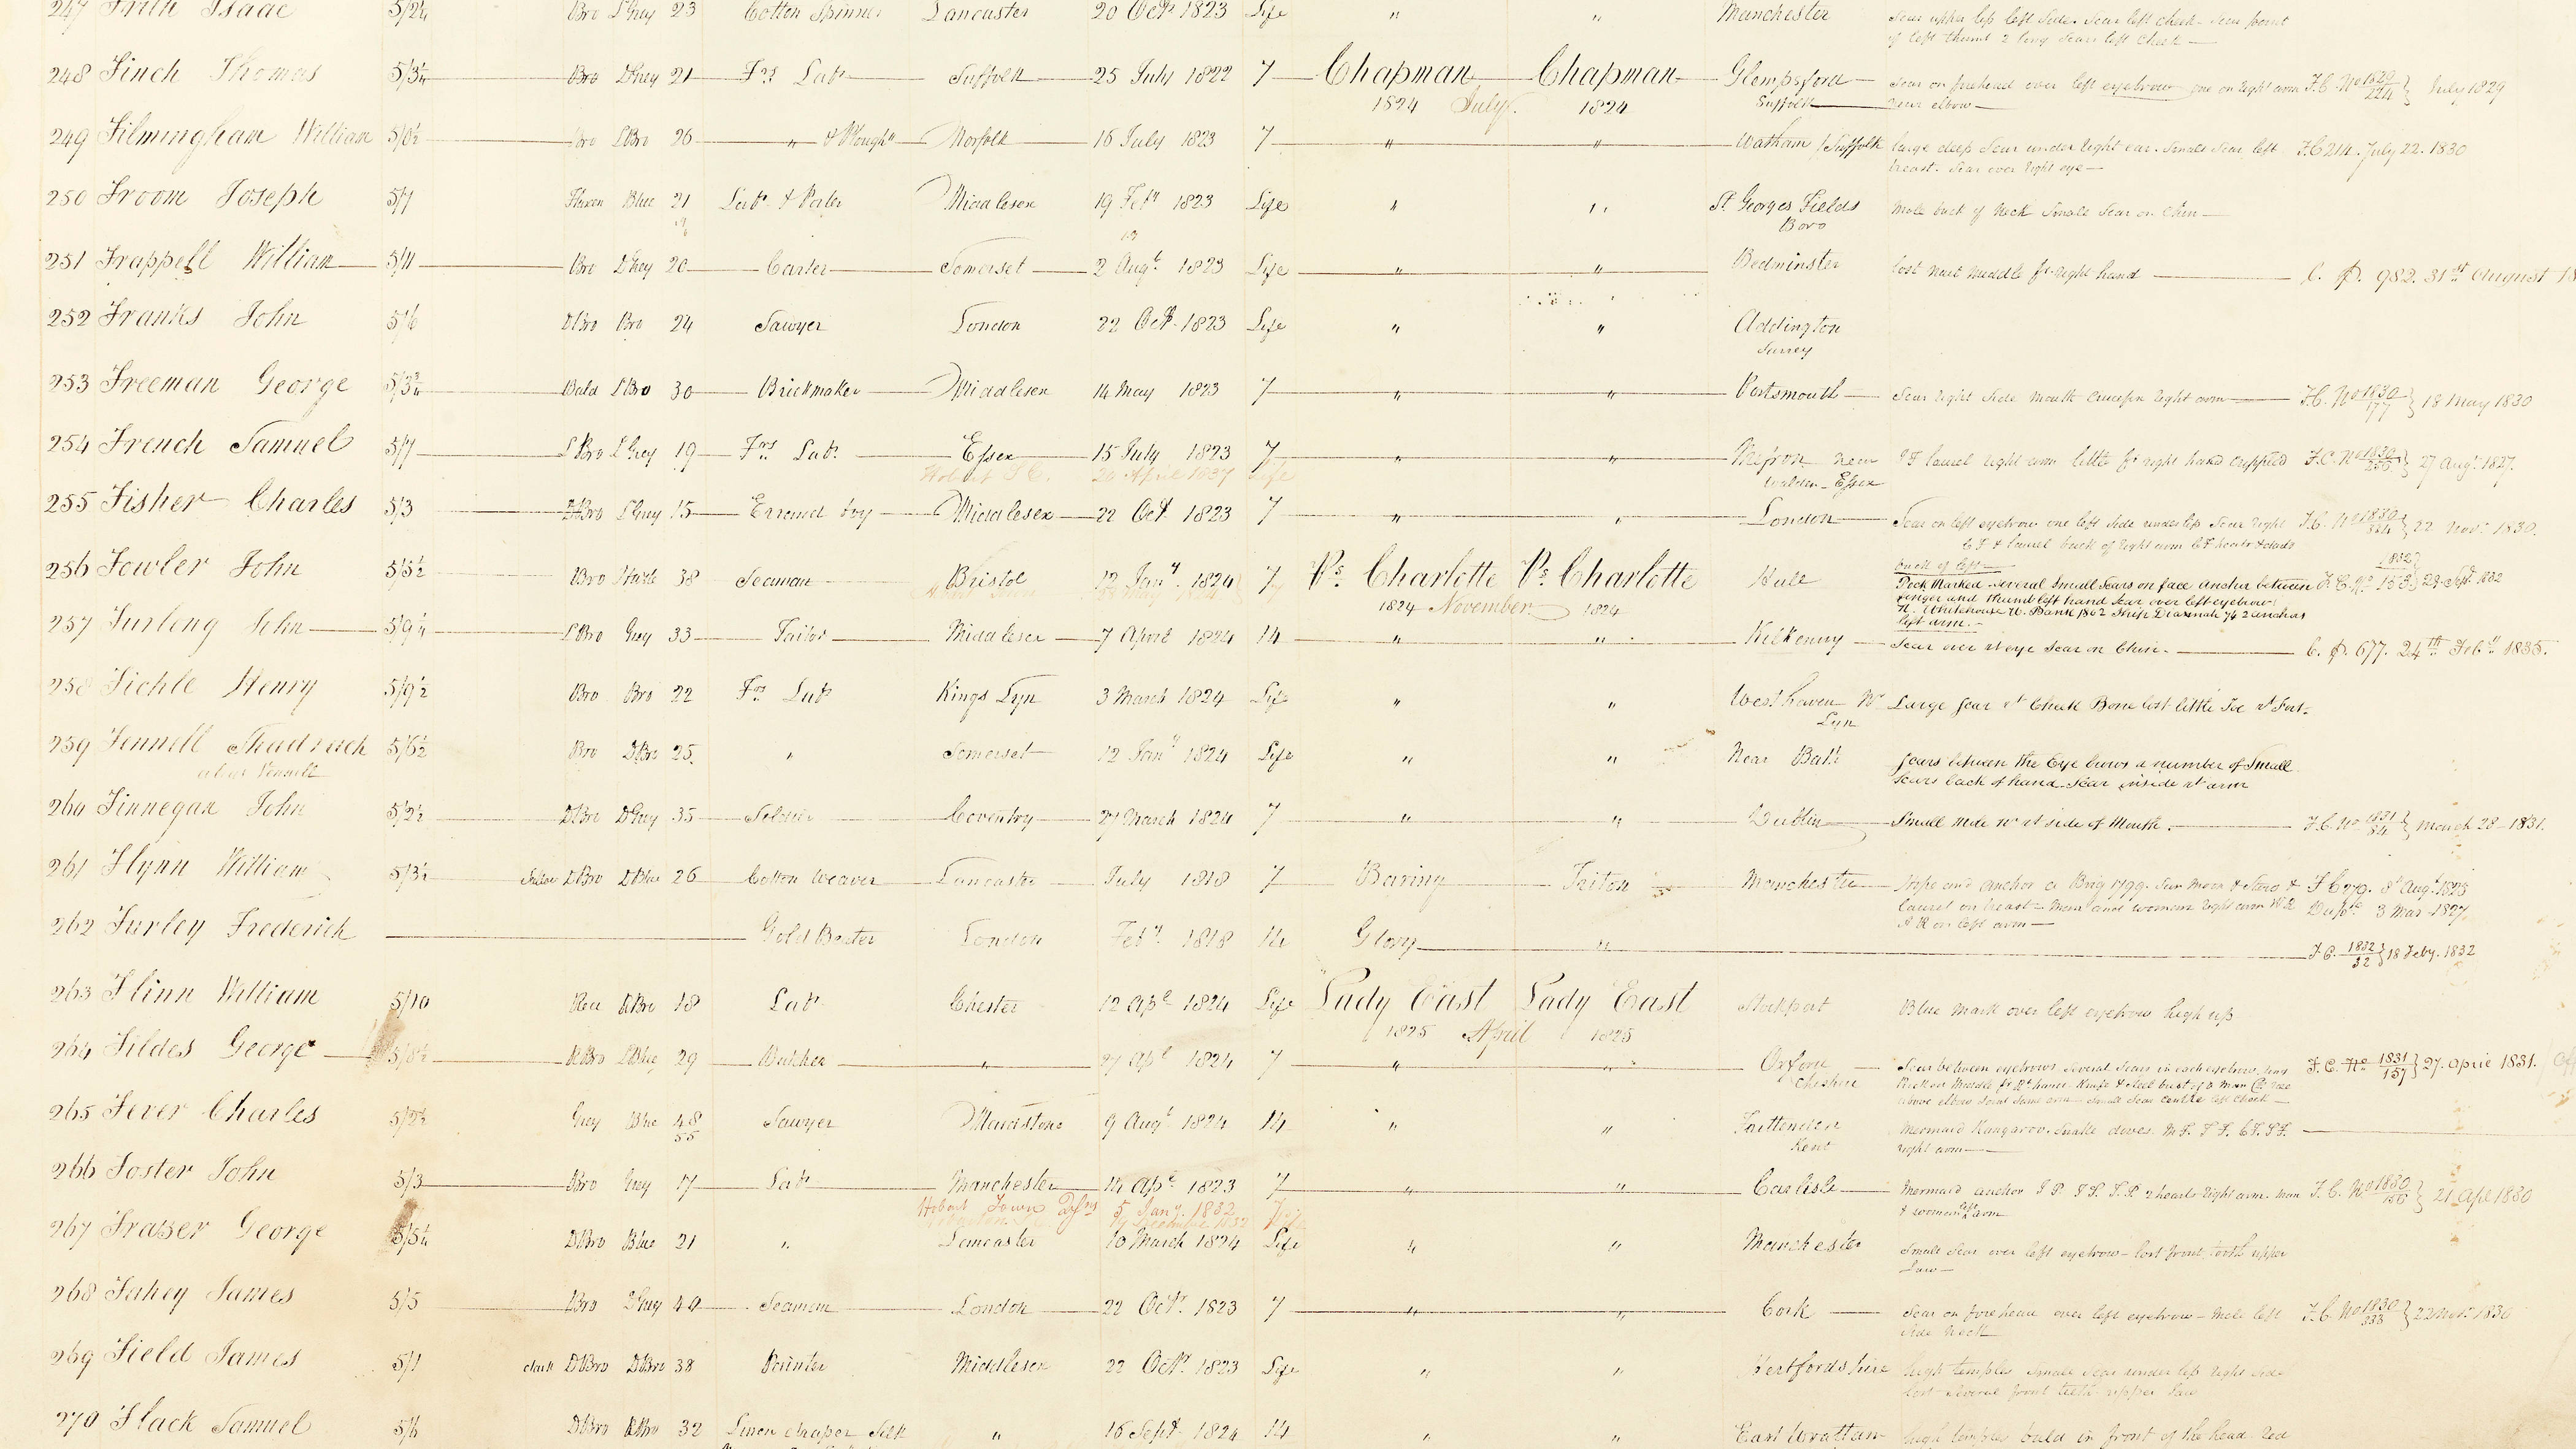 247 Frith Isaac 5/2¼ Bro LGrey 23 Cotton Spinner Lancaster 20 Octr 1823 Life " " Manchester Scar upper lip left side. Scar left cheek - Scar joint
of left thumb 2 long scars left cheek —
248 Finch Thomas 5/3¼ Bro DGrey 21 Frs Labr Suffolk 25 July 1822 7 Chapman Chapman Glempsford Scar on forehead over left eyebrow one on right arm F.C. No 1829/224 } July 1829
1824 July 1824 Suffolk near elbow —
249 Filmingham William 5/0½ Bro LBro 26 " & Plough Norfolk 16 July 1823 7 " " Watham / Suffolk large deep scar under right ear. Small scar left F.C 214. July 22. 1830
breast. Scar over right eye —
250 Froom Joseph 5/7 Flaxen Blue 21 Labr & Porter Middlesex 19 Feby 1823 Life " " St Georges Fields Mole back of neck Small scar on chin —
Boro
251 Frappell William 5/11 Bro DGrey 20 Carter Somerset 2 Augt 1823 Life " " Bedminster lost nail middle fr right hand — C. P. 982. 31st August 18
252 Franks John 5/6 DBro Bro 24 Sawyer London 22 Octr 1823 Life " " Addington
Surrey
253 Freeman George 5/3¾ Bald LBro 30 Brickmaker Middlesex 14 May 1823 7 " " Portsmouth Scar right side mouth crucifix right arm F.C. No 1830/177 } 18 May 1830
254 French Samuel 5/7 LBro LGrey 19 Frs Labr Essex 15 July 1823 7 " " near SF laurel right arm little fr right hand crippled F.C. No 1830/256 } 27 Augt 1827.
Hobart 20 April 1837 Life Walden - Essex
255 Fisher Charles 5/3 DBro LGrey 15 Errand boy Middlesex 22 Oct 1823 7 " " London Scar on left eyebrow one left side under lip Scar right F.C. No 1830/324 } 22 Novr 1830.
CF & laurel back of right arm CF hearts & darts
back of left —
256 Fowler John 5/5½ Bro Hazle 38 Seaman Bristol 12 Jany 1824 7 Ps. Charlotte Ps. Charlotte Hull Pock Marked - several small scars on face anchor between F.C. No 1832/153 } 29 Sept 1832
1824 November 1824 finger and thumb left hand scar over left eyebrow
N. Whitehouse W. Bank 1802 Ship Diasmah 74 2 anchors
left arm. —
257 Furlong John 5/9¼ LBro Grey 33 Tailor Middlesex 7 April 1824 14 " " Kilkenny Scar over rt eye Scar on Chin. — C. P. 677. 24th Feby 1835.
258 Fickle Henry 5/9½ Bro Bro 22 Frs Labr Kings Lyn 3 March 1824 Life " " Westhaven Nr Large scar rt Cheek Bone lost little Toe rt Foot.
Lyn
259 Fennell Shadrach 5/6½ Bro DBro 25 " Somerset 12 Jany 1824 Life " " Near Bath Scars between the Eye brows a number of Small
alias Vennell Scars back of hand. Scar inside rt arm
260 Finnegan John 5/2½ DBro DGrey 35 Soldier Coventry 27 March 1824 7 " " Dublin Small mole nr rt side of Mouth. — F.C. No 1831/54 } March 28 - 1831.
261 Flynn William 5/3½ DBro DBlue 26 Cotton Weaver Lancaster July 1818 7 Baring Triton Manchester hope and anchor a Brig 1799. Sun Moon & Stars & F.C 270. 8t Augt 1825
laurel on breast - Man and woman right arm Dupte 3 Mar 1827
on left arm —
262 Furley Frederick Gold Beater London Feby 1818 14 Glory " F.C. 1832/32 } 18 Feby. 1832
263 Flinn William 5/10 Red DBro 18 Labr Chester 12 Apl 1824 Life Lady East Lady East Stockport Blue mark over left eyebrow high up
1825 April 1825
264 Fildes George 5/8½ DBro DBlue 29 Butcher " 27 Apl 1824 7 " " Cheshire Scar between eyebrows several scars in each eyebrow scar F.C. No 1831/157 } 27. April 1831.
above elbow joint same arm - small scar centre left cheek —
265 Fever Charles 5/2½ Grey Blue 48 Sawyer Maidstone 9 Augt 1824 14 " " Smittenden Mermaid Kangaroo. Snake doves. M F. F F. C F. S F.
55 Kent right arm —
266 Foster John 5/3 Bro Grey 17 Labr Manchester 14 Apl 1823 7 " " Carlisle Mermaid anchor J P. J F. S. P 2 hearts right arm man F.C. No 1830/155 } 21 Apl 1830
Hobart Town 5 Jany. 1832 & woman left arm
267 Fraser George 5/5¼ DBro Blue 21 " Lancaster 10 March 1824 Life " " Manchester Small scar over left eyebrow - lost front tooth upper
Jaw —
268 Fahey James 5/5 Bro DGrey 40 Seaman London 22 Octr. 1823 7 " " Cork Scar on forehead over left eyebrow - Mole left F.C. No 1830/333 } 22 Novr 1830
side neck
269 Field James 5/1 dark DBro DBro 38 Painter Middlesex 22 Octr 1823 Life " " Hertfordshire high temples small scar under lip right side
lost several front teeth upper Jaw
270 Flack Samuel 5/6 DBro DBro 32 Linen draper Silk " 16 Sept 1824 14 " " East Wrattam high temples bald in front of the head Red